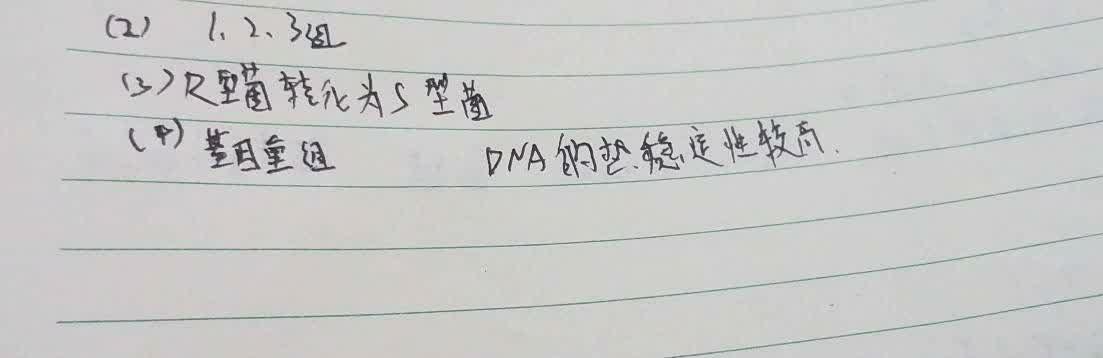 (2) 1、2、3组
(3) R型菌转化为S型菌
(4) 基因重组 DNA的热稳定性较高.